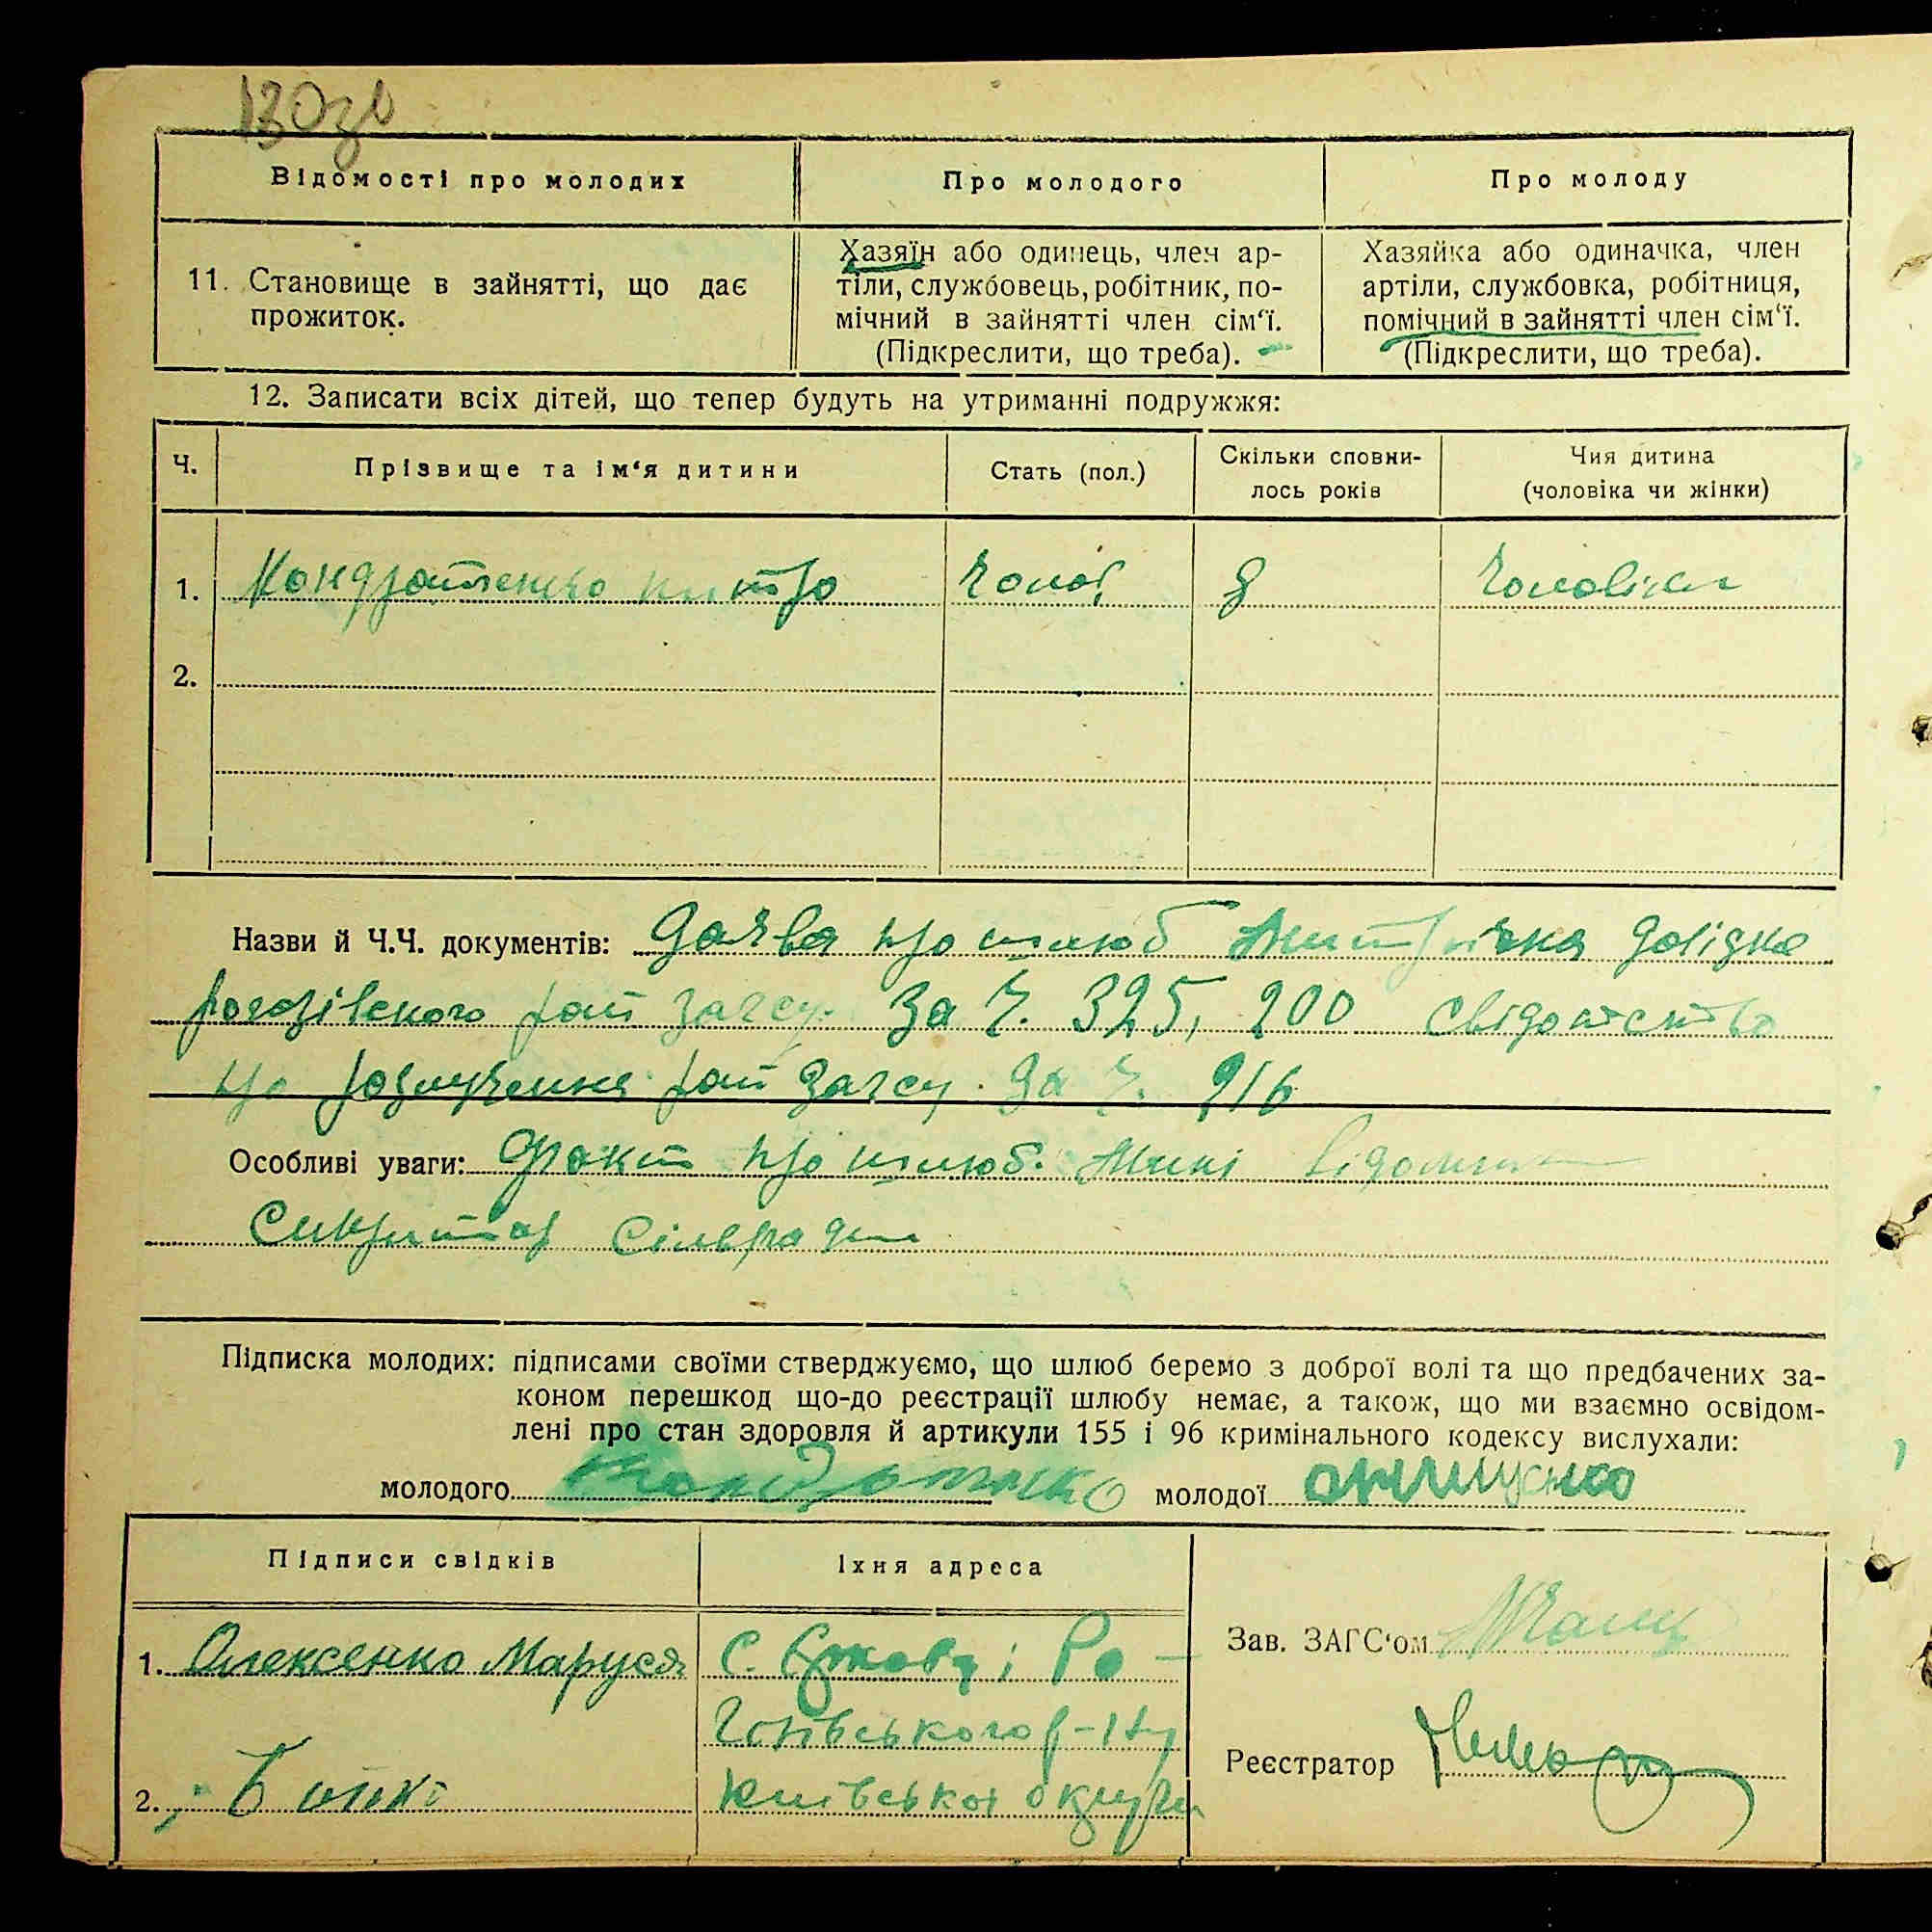 130зв
Відомості про молодих
Про молодого
Про молоду
11. Становище в зайнятті, що дає
прожиток.
Хазяїн або одинець, член ар-
тіли, службовець, робітник, по-
мічний в зайнятті член сім‘ї.
(Підкреслити, що треба).
Хазяйка або одиначка, член
артіли, службовка, робітниця,
помічний в зайнятті член сім‘ї.
(Підкреслити, що треба).
12. Записати всіх дітей, що тепер будуть на утриманні подружжя:
Ч.
Прізвище та ім‘я дитини
Стать (пол.)
Скільки сповни-
лось років
Чия дитина
(чоловіка чи жінки)
1. Кондратенко чолов 8 чоловіка
2.
Назви й Ч.Ч. документів: заява про шлюб довідка
рогозівского рай загсу. За Ч. 325, 200 свідоцтво
про розлучення рай загсу. За Ч. 916
Особливі уваги: Факт про шлюб. мині відомий
Сикритар Сільради
Підписка молодих: підписами своїми стверджуємо, що шлюб беремо з доброї волі та що предбачених за-
коном перешкод що-до реєстрації шлюбу немає, а також, що ми взаємно освідом-
лені про стан здоровля й артикули 155 і 96 кримінального кодексу вислухали:
молодого Кондратенко молодої Онищенко
Підписи свідків
Їхня адреса
1. Олексенко Маруся
С. Єрковці Ро-
гозівського р-ну
Київської округи
2. Бойко
Зав. ЗАГС‘ом
Реєстратор